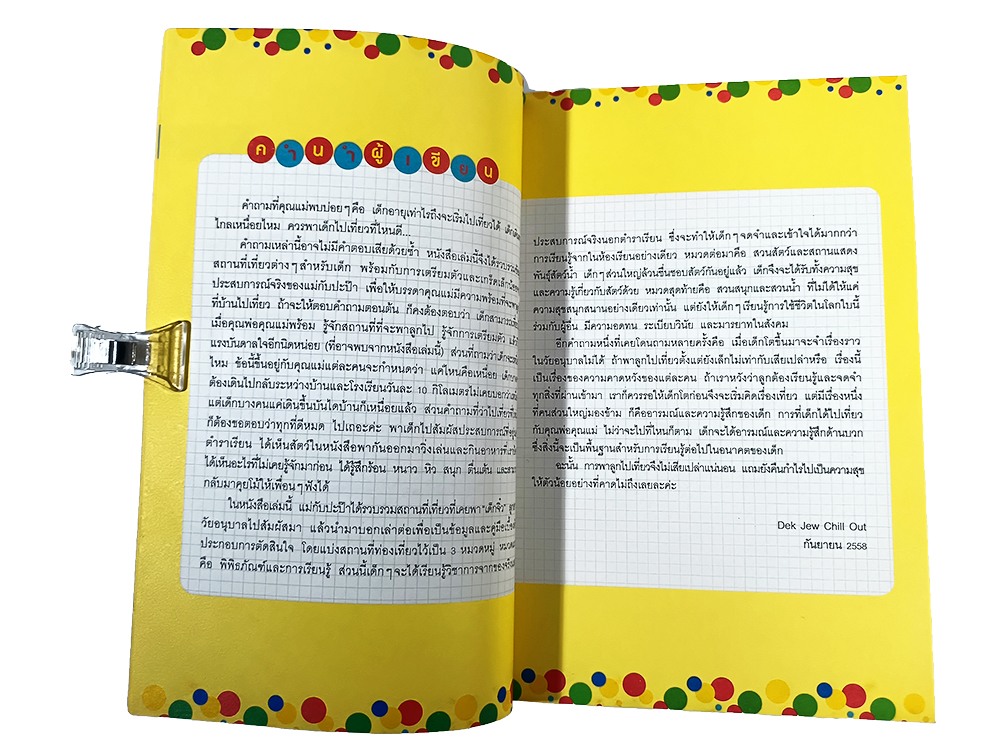 คำนำผู้เขียน
คำถามที่คุณแม่พบบ่อยๆคือ เด็กอายุเท่าไรถึงจะเริ่มไปเที่ยวได้
ไกลเหนื่อยไหม ควรพาเด็กไปเที่ยวที่ไหนดี...
คำถามเหล่านี้อาจไม่มีคำตอบเสียด้วยซ้ำ หนังสือเล่มนี้จึงได้
สถานที่เที่ยวต่างๆสำหรับเด็ก พร้อมกับการเตรียมตัวและเกร็ดเล็ก
ประสบการณ์จริงของแม่กับปะป๊า เพื่อให้บรรดาคุณแม่มีความพร้อมที่จะ
ที่บ้านไปเที่ยว ถ้าจะให้ตอบคำถามตอนต้น ก็คงต้องตอบว่า เด็ก
เมื่อคุณพ่อคุณแม่พร้อม รู้จักสถานที่ที่จะพาลูกไป รู้จักการเตรียมตัว
แรงบันดาลใจอีกนิดหน่อย (ที่อาจพบจากหนังสือเล่มนี้) ส่วนที่ถามว่า
ไหม ข้อนี้ขึ้นอยู่กับคุณแม่แต่ละคนจะกำหนดว่า แค่ไหนคือเหนื่อย
ต้องเดินไปกลับระหว่างบ้านและโรงเรียนวันละ 10 กิโลเมตรไม่เคยบอกว่า
แต่เด็กบางคนแค่เดินขึ้นบันไดบ้านก็เหนื่อยแล้ว ส่วนคำถามที่ว่าไปเที่ยว
ก็ต้องขอตอบว่าทุกที่ดีหมด ไปเถอะค่ะ พาเด็กไปสัมผัสประสบการณ์
ตำราเรียน ได้เห็นสัตว์ในหนังสือพากันออกมาวิ่งเล่นและกินอาหาร
ได้เห็นอะไรที่ไม่เคยรู้จักมาก่อน ได้รู้สึกร้อน หนาว หิว สนุก ตื่นเต้น
กลับมาคุยโม้ให้เพื่อนๆฟังได้
ในหนังสือเล่มนี้ แม่กับปะป๊าได้รวบรวมสถานที่เที่ยวที่เคยพา "เด็กจิ๋ว"
วัยอนุบาลไปสัมผัสมา แล้วนำมาบอกเล่าต่อเพื่อเป็นข้อมูลและคู่มือ
ประกอบการตัดสินใจ โดยแบ่งสถานที่ท่องเที่ยวไว้เป็น 3 หมวดหมู่
คือ พิพิธภัณฑ์และการเรียนรู้ ส่วนนี้เด็กๆจะได้เรียนรู้วิชาการจากของจริง
ประสบการณ์จริงนอกตำราเรียน ซึ่งจะทำให้เด็กๆจดจำและเข้าใจได้มากกว่า
การเรียนรู้จากในห้องเรียนอย่างเดียว หมวดต่อมาคือ สวนสัตว์และสถานแสดง
พันธุ์สัตว์น้ำ เด็กๆส่วนใหญ่ล้วนชื่นชอบสัตว์กันอยู่แล้ว เด็กจึงจะได้รับทั้งความสุข
และความรู้เกี่ยวกับสัตว์ด้วย หมวดสุดท้ายคือ สวนสนุกและสวนน้ำ ที่ไม่ได้ให้แค่
ความสุขสนุกสนานอย่างเดียวเท่านั้น แต่ยังให้เด็กๆเรียนรู้การใช้ชีวิตในโลกใบนี้
ร่วมกับผู้อื่น มีความอดทน ระเบียบวินัย และมารยาทในสังคม
อีกคำถามหนึ่งที่เคยโดนถามหลายครั้งคือ เมื่อเด็กโตขึ้นมาจะจำเรื่องราว
ในวัยอนุบาลได้ไหม ถ้าพาลูกไปเที่ยวตั้งแต่ยังเล็กไม่เท่ากับเสียเปล่าหรือ เรื่องนี้
เป็นเรื่องของความคาดหวังของแต่ละคน ถ้าเราหวังว่าลูกต้องเรียนรู้และจดจำ
ทุกสิ่งที่ผ่านเข้ามา เราก็ควรรอให้เด็กโตก่อนจึงจะเริ่มคิดเรื่องเที่ยว แต่มีเรื่องหนึ่ง
ที่คนส่วนใหญ่มองข้าม ก็คืออารมณ์และความรู้สึกของเด็ก การที่เด็กได้ไปเที่ยว
กับคุณพ่อคุณแม่ ไม่ว่าจะไปที่ไหนก็ตาม เด็กจะได้อารมณ์และความรู้สึกด้านบวก
ซึ่งสิ่งนี้จะเป็นพื้นฐานสำหรับการเรียนรู้ต่อไปในอนาคตของเด็ก
ฉะนั้น การพาลูกไปเที่ยวจึงไม่เสียเปล่าแน่นอน แถมยังคืนกำไรไปเป็นความสุข
ให้ตัวน้อยอย่างที่คาดไม่ถึงเลยละค่ะ
Dek Jew Chill Out
กันยายน 2558